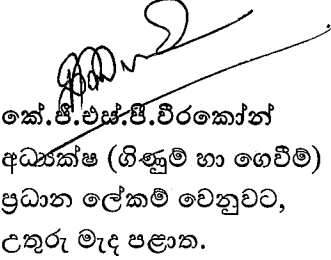 කේ.ජී.එස්.පී.වීරකෝන්
අධ්‍යක්ෂ (ගිණුම් හා ගෙවීම්)
ප්‍රධාන ලේකම් වෙනුවට,
උතුරු මැද පළාත.